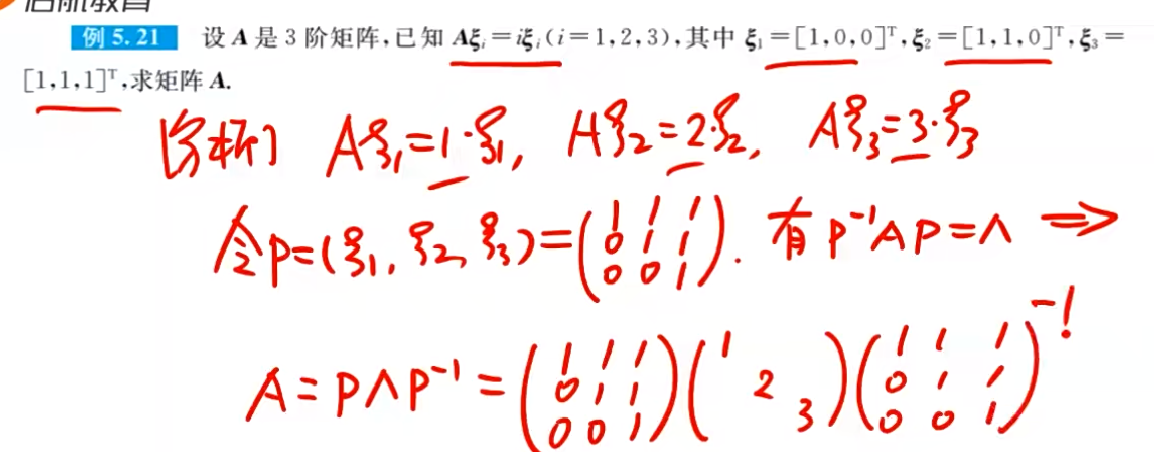 启航教育
例 5.21 设 A 是 3 阶矩阵,已知 Aξᵢ=iξᵢ(i=1,2,3),其中 ξ₁=[1,0,0]ᵀ,ξ₂=[1,1,0]ᵀ,ξ₃=
[1,1,1]ᵀ,求矩阵 A.
[分析] Aξ₁=1·ξ₁, Aξ₂=2·ξ₂, Aξ₃=3·ξ₃
令P=(ξ₁, ξ₂, ξ₃)=(1 1 1; 0 1 1; 0 0 1). 有 P⁻¹AP=Λ ⇒
A=PΛP⁻¹=(1 1 1; 0 1 1; 0 0 1)(1 2 3)(1 1 1; 0 1 1; 0 0 1)⁻¹